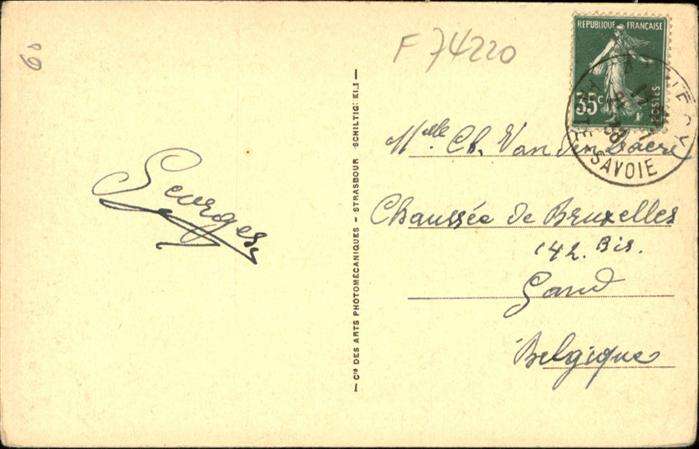 60
F 74220
RÉPUBLIQUE FRANÇAISE
35c
POSTES
SAVOIE
Mlle Ch. Van den
Chaussée de Bruxelles
142 Bis.
Gand
Belgique
Georges
— Cie DES ARTS PHOTOMÉCANIQUES - STRASBOUR SCHILTIGHEIM —